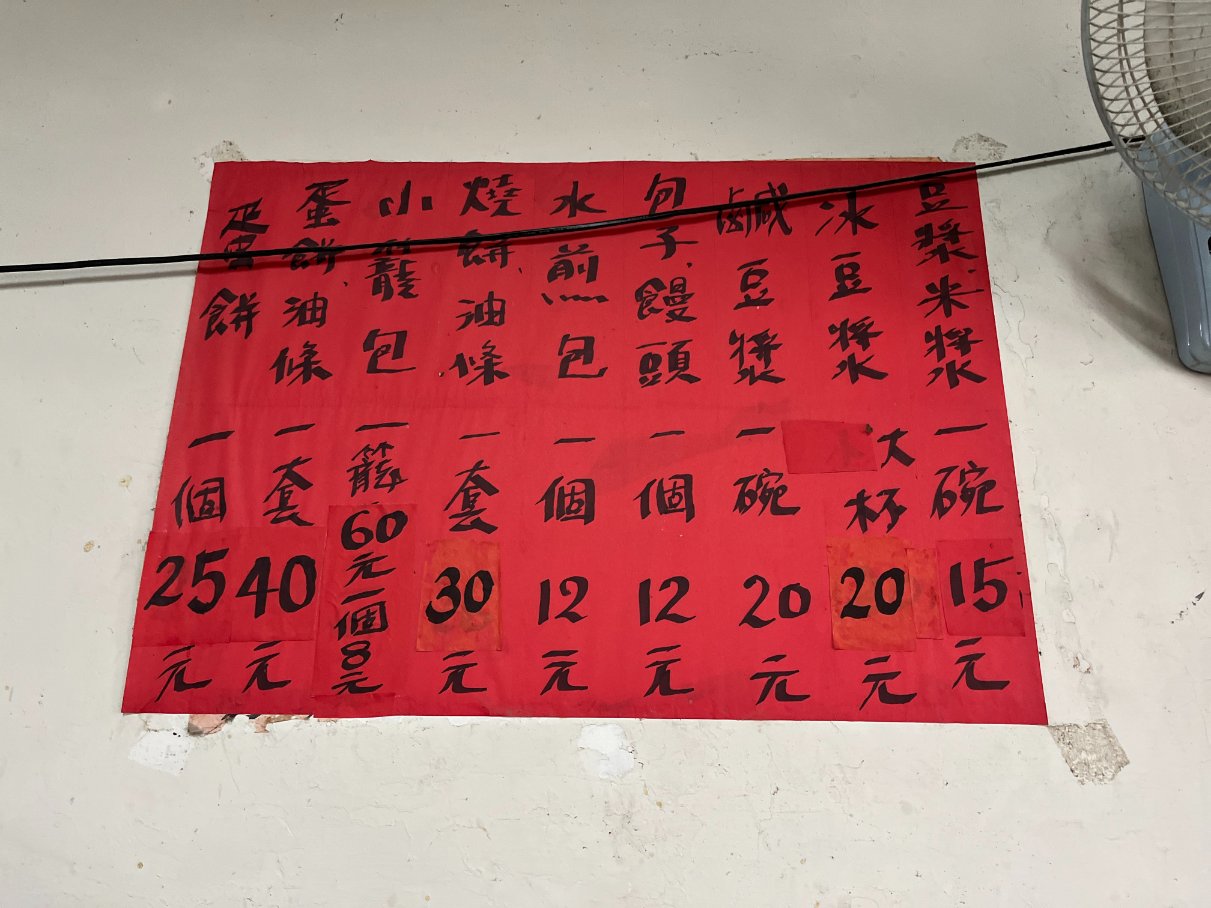 豆漿.米漿一碗15元
冰豆漿大杯20元
鹹豆漿一碗20元
包子.饅頭一個12元
水煎包一個12元
燒餅.油條一套30元
小籠包一籠60元一個8元
蛋餅.油條一套40元
蛋餅一個25元